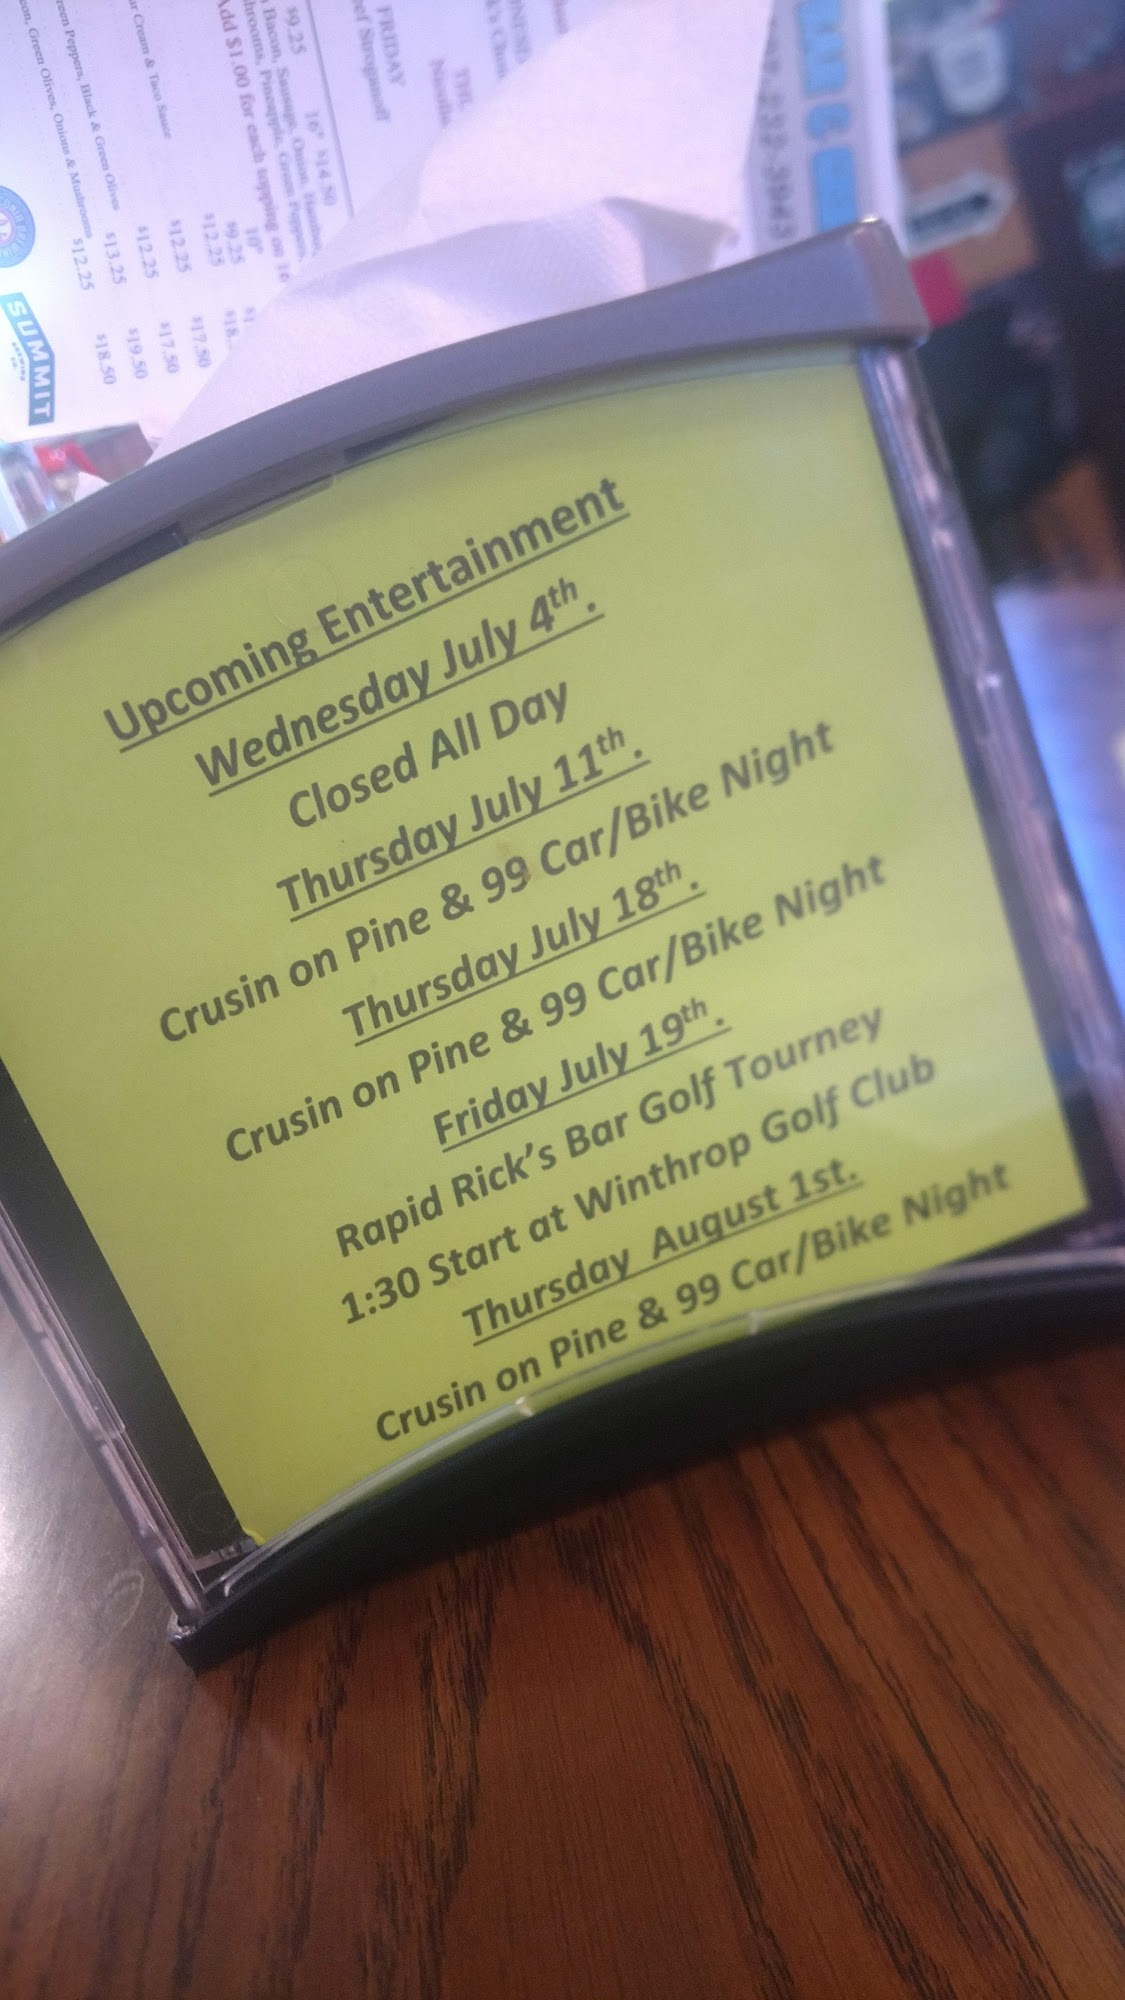 Upcoming Entertainment
Wednesday July 4th.
Closed All Day
Thursday July 11th.
Crusin on Pine & 99 Car/Bike Night
Thursday July 18th.
Crusin on Pine & 99 Car/Bike Night
Friday July 19th.
Rapid Rick's Bar Golf Tourney
1:30 Start at Winthrop Golf Club
Thursday August 1st.
Crusin on Pine & 99 Car/Bike Night
FRIDAY
Stroganoff
$9.25 16" $14.50
Bacon, Sausage, Onion,
Pineapple, Green Peppers,
Add $1.00 for each topping on
10"
$9.25
$12.25
$12.25 $17.50
Cream & Taco Sauce $12.25 $17.50
Peppers, Black & Green Olives $13.25 $19.50
Green Olives, Onions & Mushrooms $12.25 $18.50
SUMMIT
BREWING
CO.